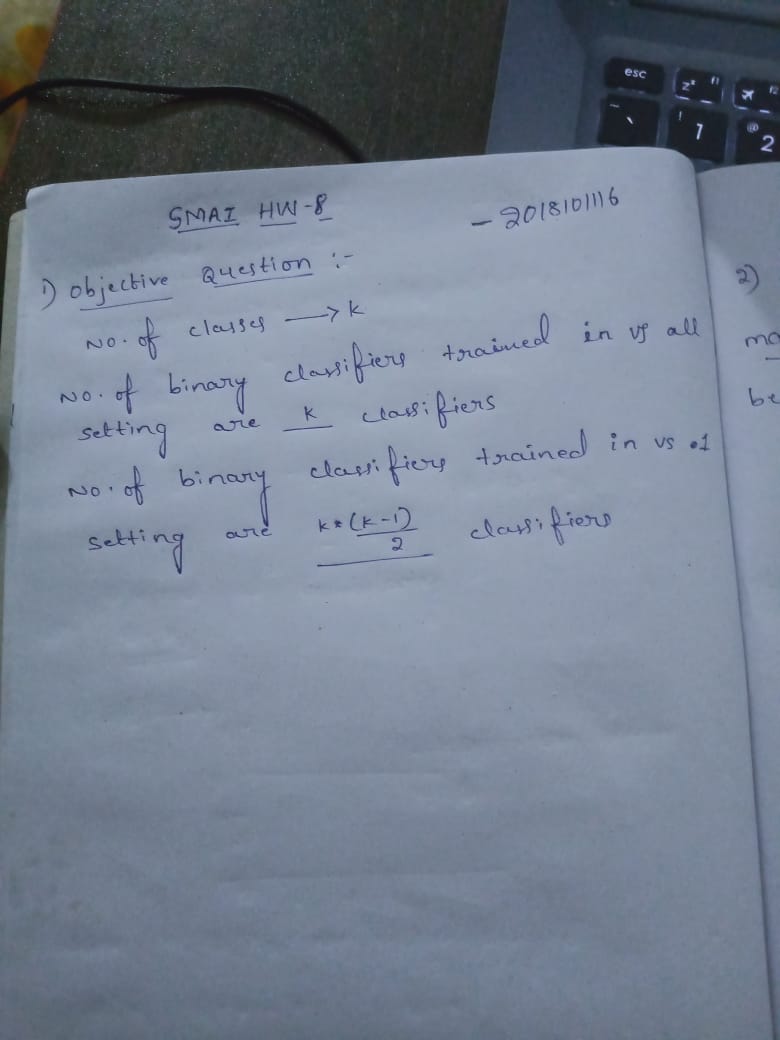 SMAI HW-8
- 2018101116
1) Objective Question :-
No. of classes → k
No. of binary classifiers trained in vs all
setting are k classifiers
No. of binary classifiers trained in vs 1
setting are k*(k-1)/2 classifiers
2)
ma
be
esc
z² f1
f2
~ `
! 1
@ 2